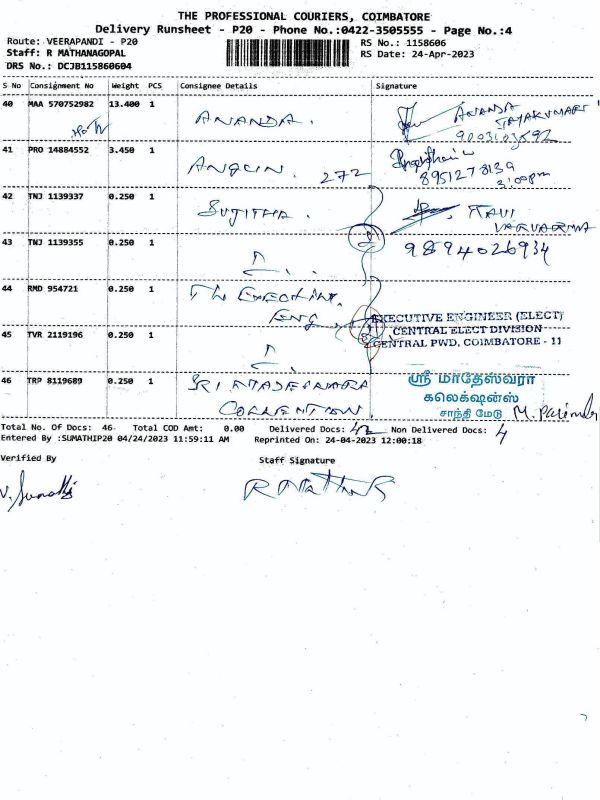 THE PROFESSIONAL COURIERS, COIMBATORE
Delivery Runsheet - P20 - Phone No.:0422-3505555 - Page No.:4
Route: VEERAPANDI - P20
RS No.: 1158606
Staff: R MATHANAGOPAL
RS Date: 24-Apr-2023
DRS No.: DCJB115860604
S No Consignment No Weight PCS Consignee Details Signature
40 MAA 570752982 13.400 1 ANANDA. ANANDA
JAYAKUMARI
9003103592
41 PRO 14884552 3.450 1
272
8951278139
3:00pm
42 TNJ 1139337 0.250 1 SUJITHA. RAVI
VARVARMA
43 TNJ 1139355 0.250 1 9894026934
44 RMD 954721 0.250 1
ENG
EXECUTIVE ENGINEER (ELECT)
CENTRAL ELECT DIVISION
45 TVR 2119196 0.250 1 CENTRAL PWD, COIMBATORE - 11
46 TRP 8119689 0.250 1 SRI
ஸ்ரீ மாதேஸ்வரா
கலெக்ஷன்ஸ்
சாந்தி மேடு
Total No. Of Docs: 46 Total COD Amt: 0.00 Delivered Docs: 42 Non Delivered Docs: 4
Entered By :SUMATHIP20 04/24/2023 11:59:11 AM Reprinted On: 24-04-2023 12:00:18
Verified By Staff Signature
V. Sumathi